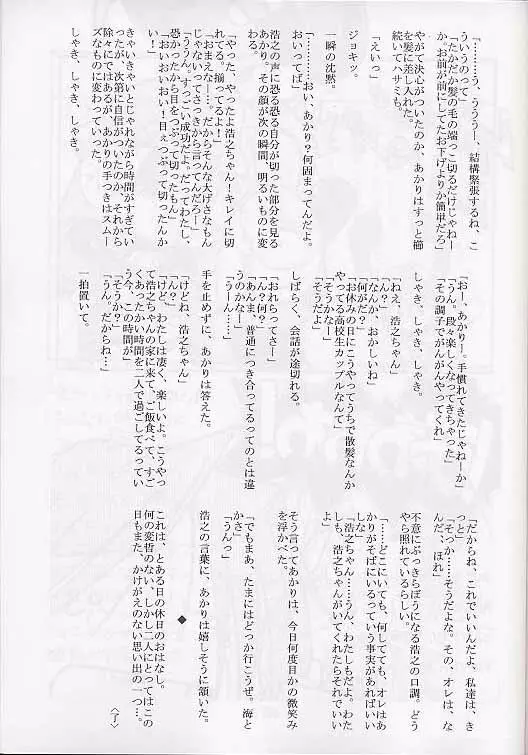 「………う、うううー、結構緊張するね、こ
ういうのって」
「たかだか髪の毛の端っこ切るだけじゃねー
か。お前が前にしてたお下げよりか簡単だろ」
やがて決心がついたのか、あかりはすっと櫛
を髪に差し入れた。
続いてハサミも。
「えいっ」
ジョキッ。
一瞬の沈黙。
「…………おい、あかり?何固まってんだよ。
おいってば」
浩之の声に恐る恐る自分が切った部分を見る
あかり。その顔が次の瞬間、明るいものに変
わる。
「やった、やったよ浩之ちゃん!キレイに切
れてる。揃ってるよ!」
「おまえなー…。だからそんな大げさなもん
じゃないってさっきから言ってんだろー」
「ううん。すっごい成功だよ。だってわたし、
恐かったから目をつぶって切ったもん」
「おいおいおい!目ぇつぶって切ったんか
い!」
きゃいきゃいとじゃれながら時間がすぎてい
ったが、次第に自信がついたのか、それから
除々にではあるが、あかりの手つきはスムー
ズなものに変わっていった。
しゃき、しゃき、しゃき。
「おー、あかりー。手慣れてきたじゃねーか」
「うん。段々楽しくなってきちゃった」
「その調子でがんがんやってくれ」
しゃき、しゃき、しゃき。
「ねえ、浩之ちゃん」
「ん?」
「なんか、おかしいね」
「何がだ?」
「お休みの日にこうやってうちで散髪なんか
やってる高校生カップルなんて」
「そうかなー」
「そうだよ」
しばらく、会話が途切れる。
「おれらってさー」
「ん?何?」
「あんま、普通につき合ってるってのとは違
うのかなー」
「うーん……」
手を止めずに、あかりは答えた。
「けどね、浩之ちゃん」
「ん?」
「けど、わたしは凄く、楽しいよ。こうやっ
て浩之ちゃんの家に来て、ご飯食べて、すご
くあったかい時間を二人で過ごしてるってい
う今、この時間が」
「そうか?」
「うん。だからね…」
一拍置いて。
「だからね、これでいいんだよ、私達は、き
っと」
「そっか……そうだよな。その、オレは、な
んだ、ほれ」
不意にぶっきらぼうになる浩之の口調。どう
やら照れているらしい。
「……どこにいても、何してても、オレはあ
かりがそばにいるっていう事実があればいい
しな」
「浩之ちゃん……うん、わたしもだよ。わた
しも、浩之ちゃんがいてくれたらそれでいい
よ」
そう言ってあかりは、今日何度目かの微笑み
を浮かべた。
「でもまあ、たまにはどっか行こうぜ。海と
かさ」
「うんっ」
浩之の言葉に、あかりは嬉しそうに頷いた。
◆
これは、とある日の休日のおはなし。
何の変哲のない、しかし二人にとってはこの
日もまた、かけがえのない思い出の一つ…。
〈了〉